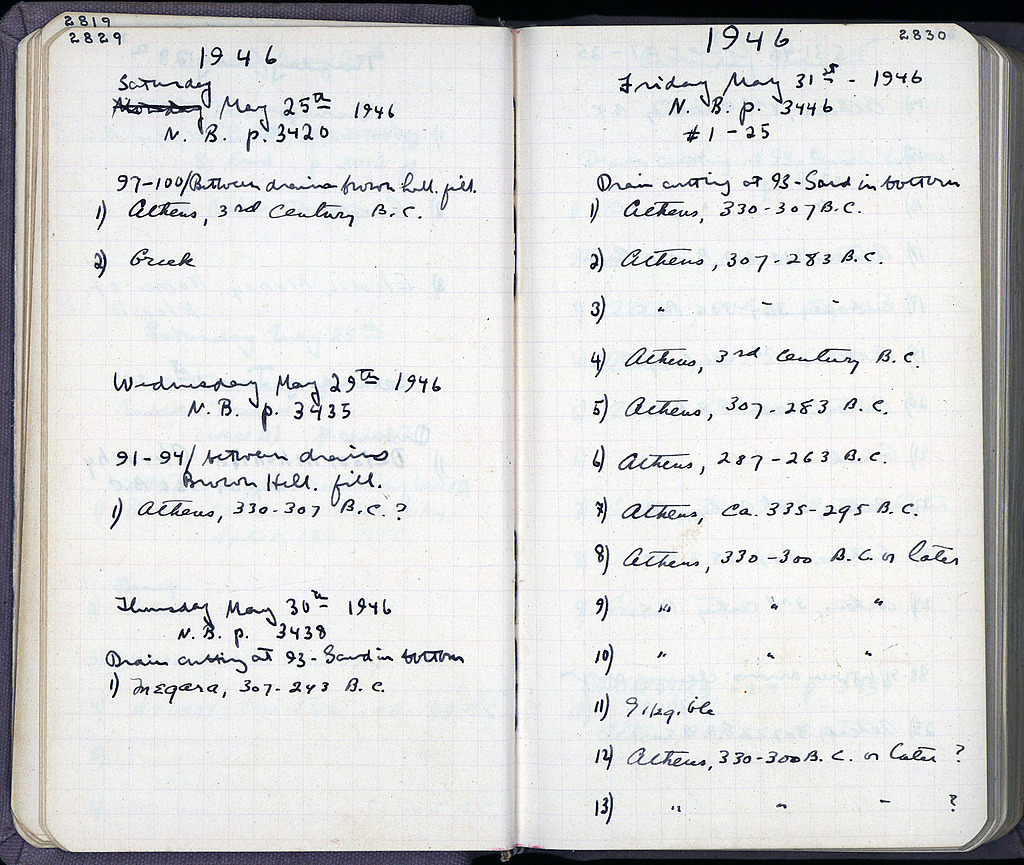 2819
2829
1946
Saturday
Monday May 25th 1946
N. B. p. 3420
97-100/Between drains brown hell. fill.
1) Athens, 3rd Century B.C.
2) Greek
Wednesday May 29th 1946
N. B. p. 3435
91-94/ between drains
Brown Hell. fill.
1) Athens, 330-307 B.C.?
Thursday May 30th 1946
N. B. p. 3438
Drain cutting at 93-Sand in bottom
1) Megara, 307-243 B.C.
1946
2830
Friday May 31st - 1946
N. B. p. 3446
#1-25
Drain cutting at 93-Sand in bottom
1) Athens, 330-307 B.C.
2) Athens, 307-283 B.C.
3) " - -
4) Athens, 3rd Century B.C.
5) Athens, 307-283 B.C.
6) Athens, 287-263 B.C.
7) Athens, Ca. 335-295 B.C.
8) Athens, 330-300 B.C. or later
9) " " "
10) " " "
11) Illegible
12) Athens, 330-300 B.C. or later ?
13) " " - ?